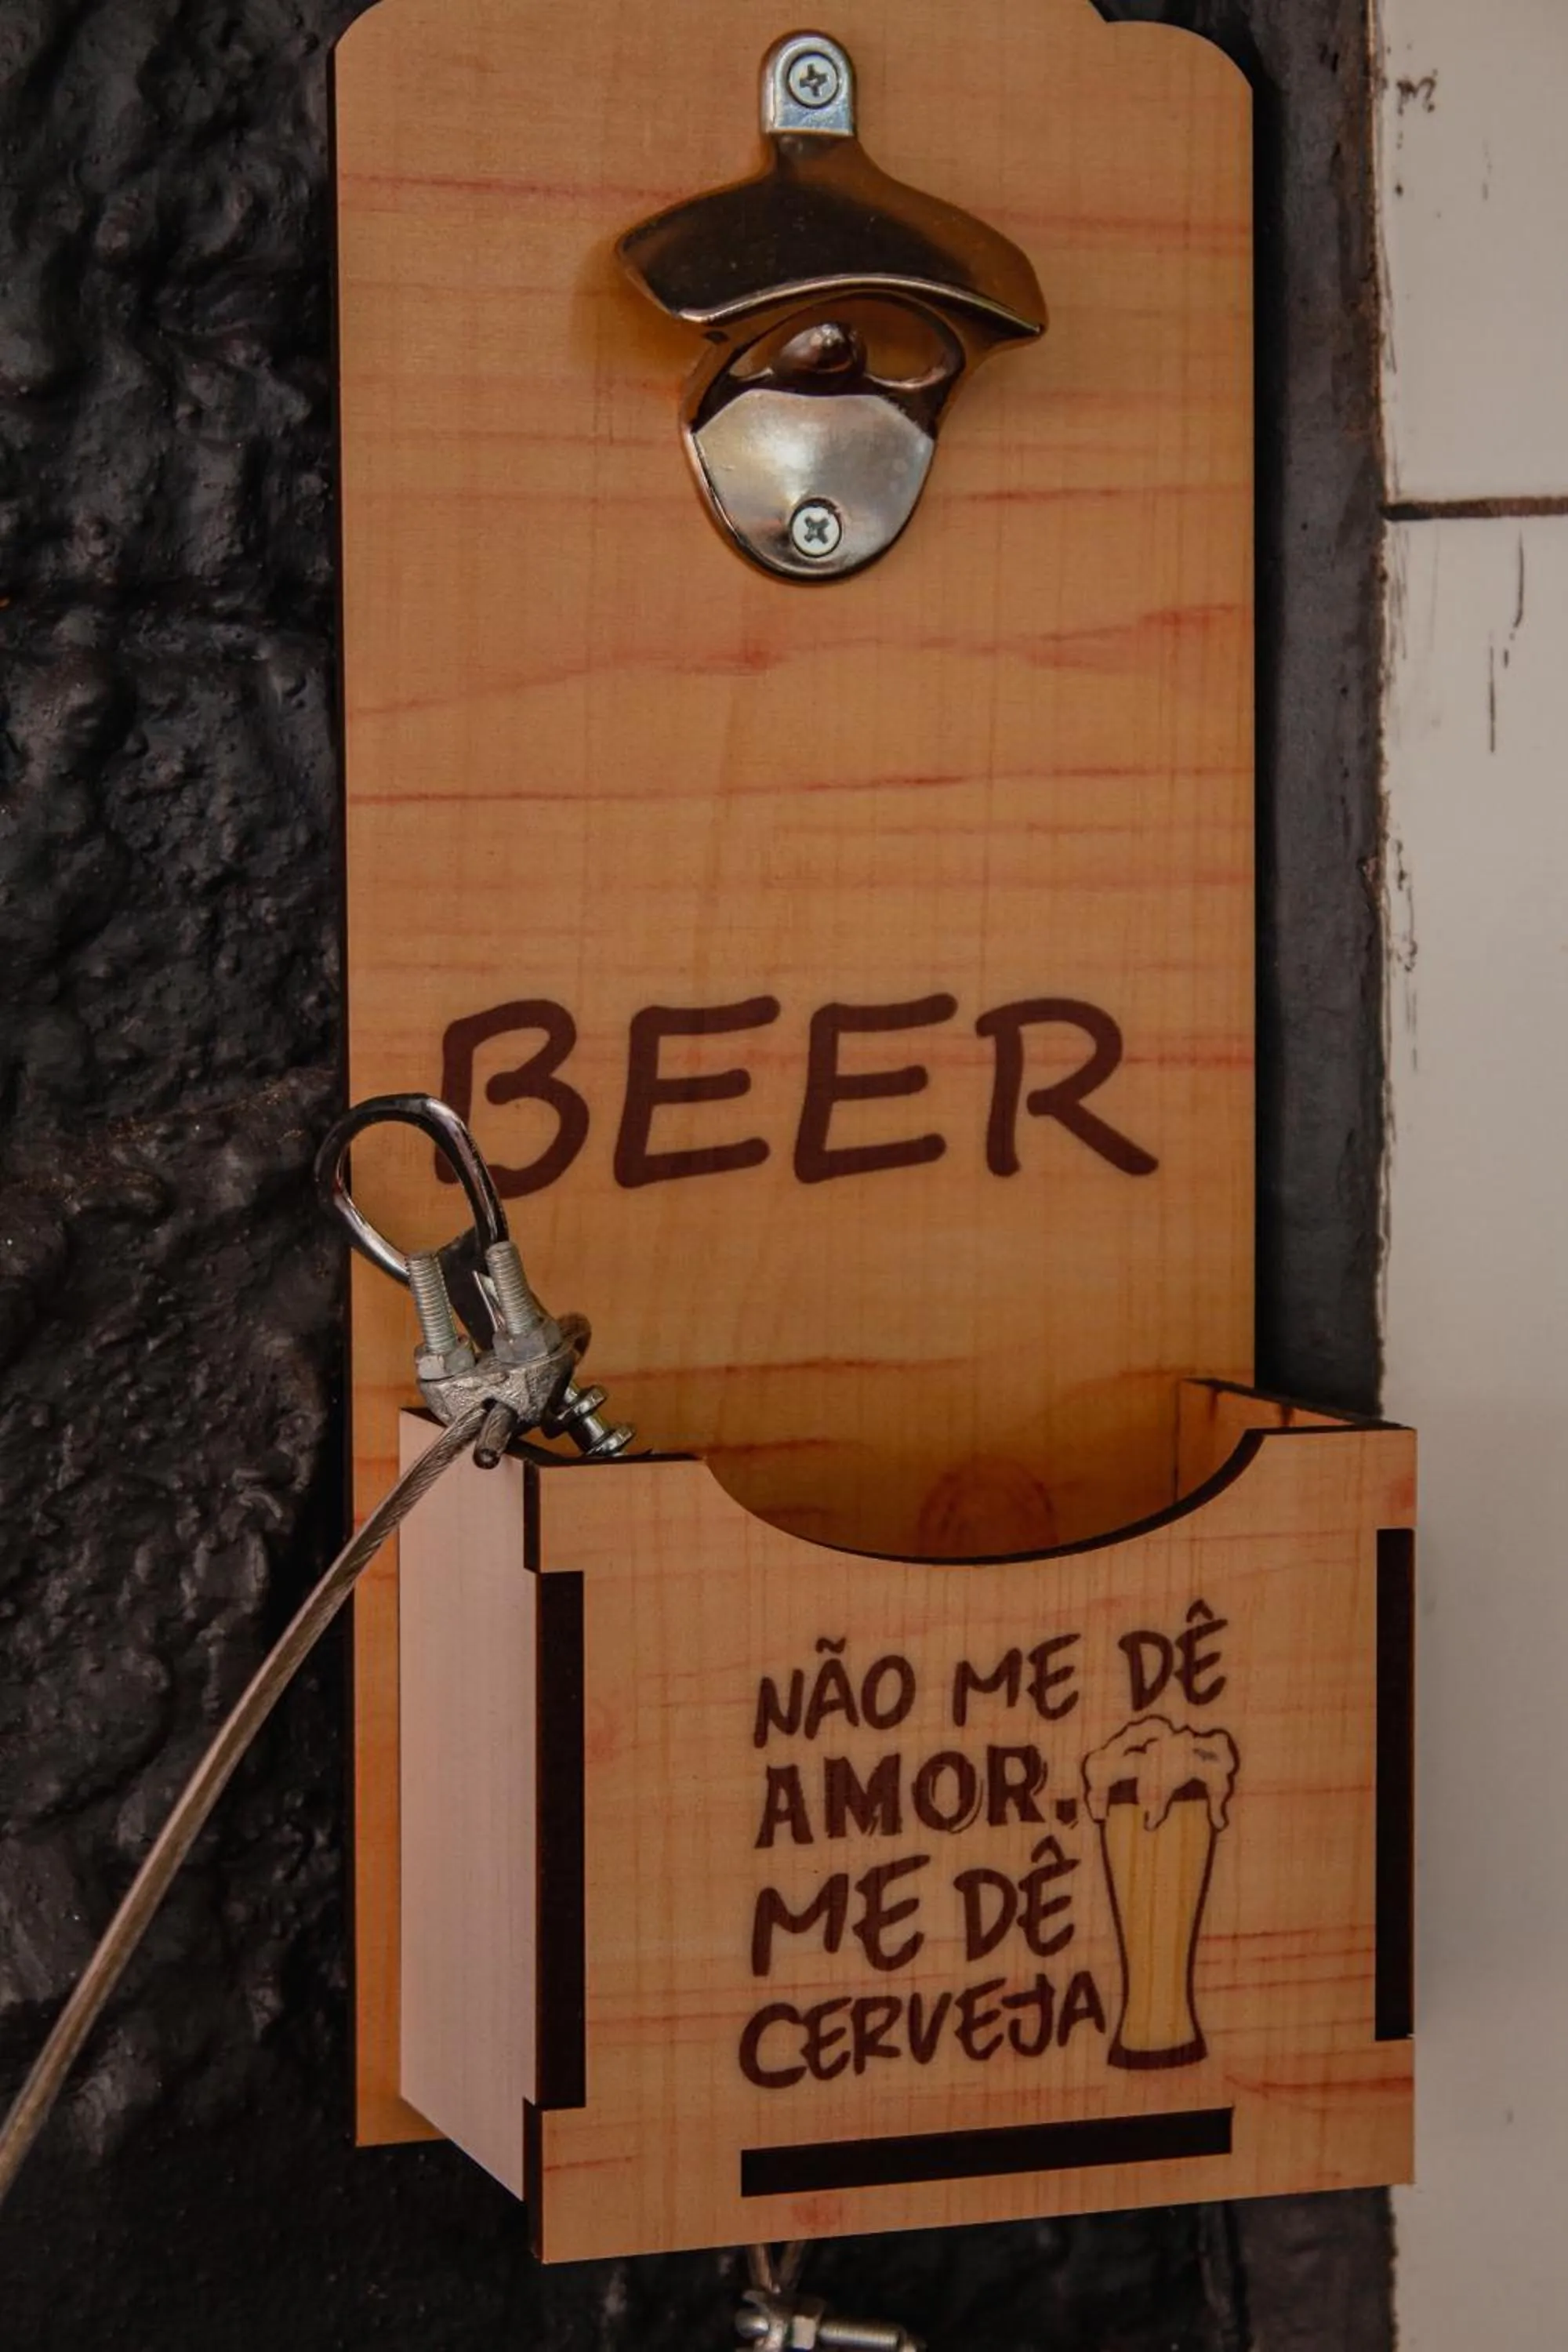 BEER
NÃO ME DÊ
AMOR.
ME DÊ
CERVEJA